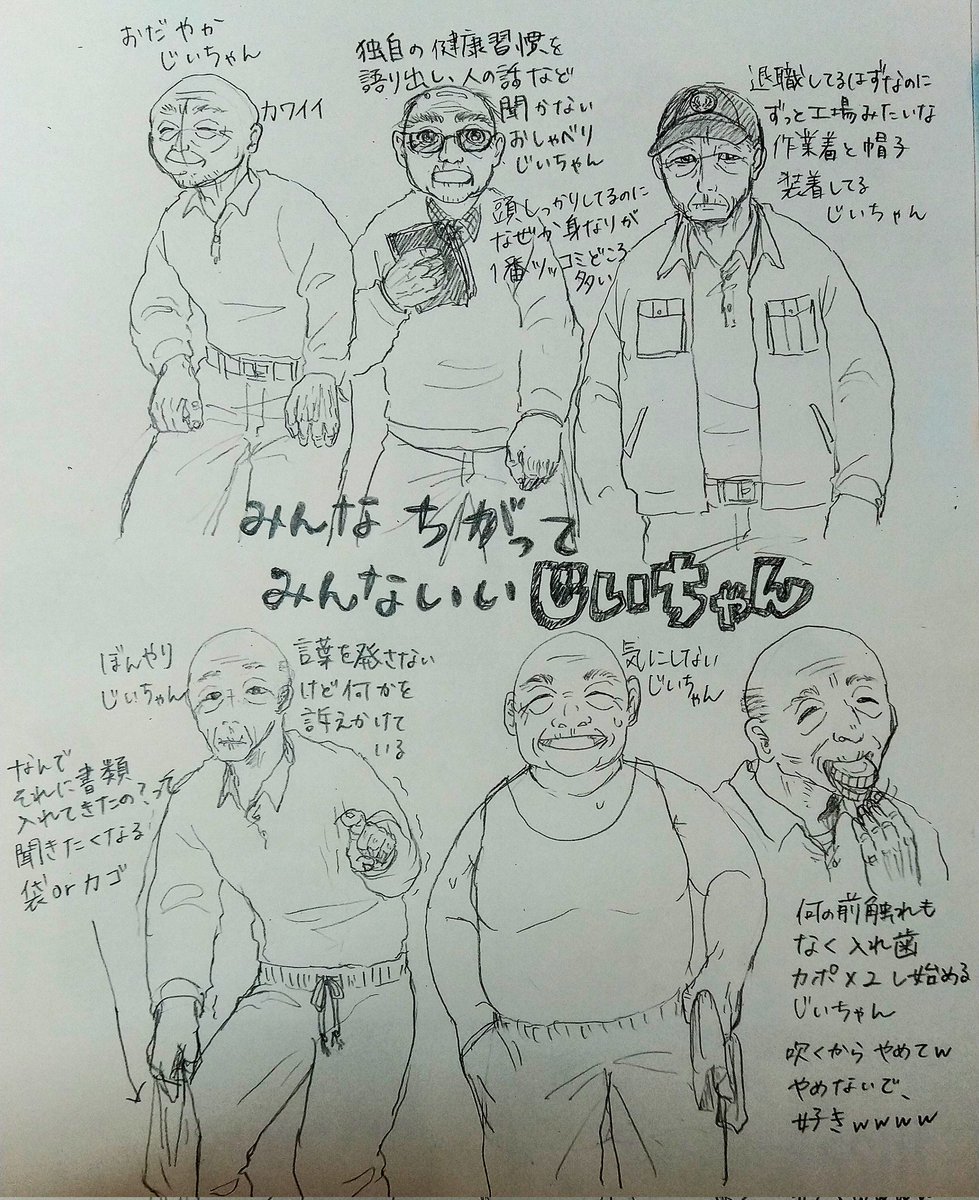 おだやか
じいちゃん
カワイイ
独自の健康習慣を
語り出し、人の話など
聞かない
おしゃべり
じいちゃん
頭しっかりしてるのに
なぜか身なりが
1番ツッコミどころ
多い
退職してるはずなのに
ずっと工場みたいな
作業着と帽子
装着してる
じいちゃん
みんなちがって
みんないいじいちゃん
ぼんやり
じいちゃん
言葉を発さない
けど何かを
訴えかけて
いる
なんで
それに書類
入れてきたの?って
聞きたくなる
袋orカゴ
気にしない
じいちゃん
何の前触れも
なく入れ歯
カポ×2し始める
じいちゃん
吹くからやめてw
やめないで、
好きwwww